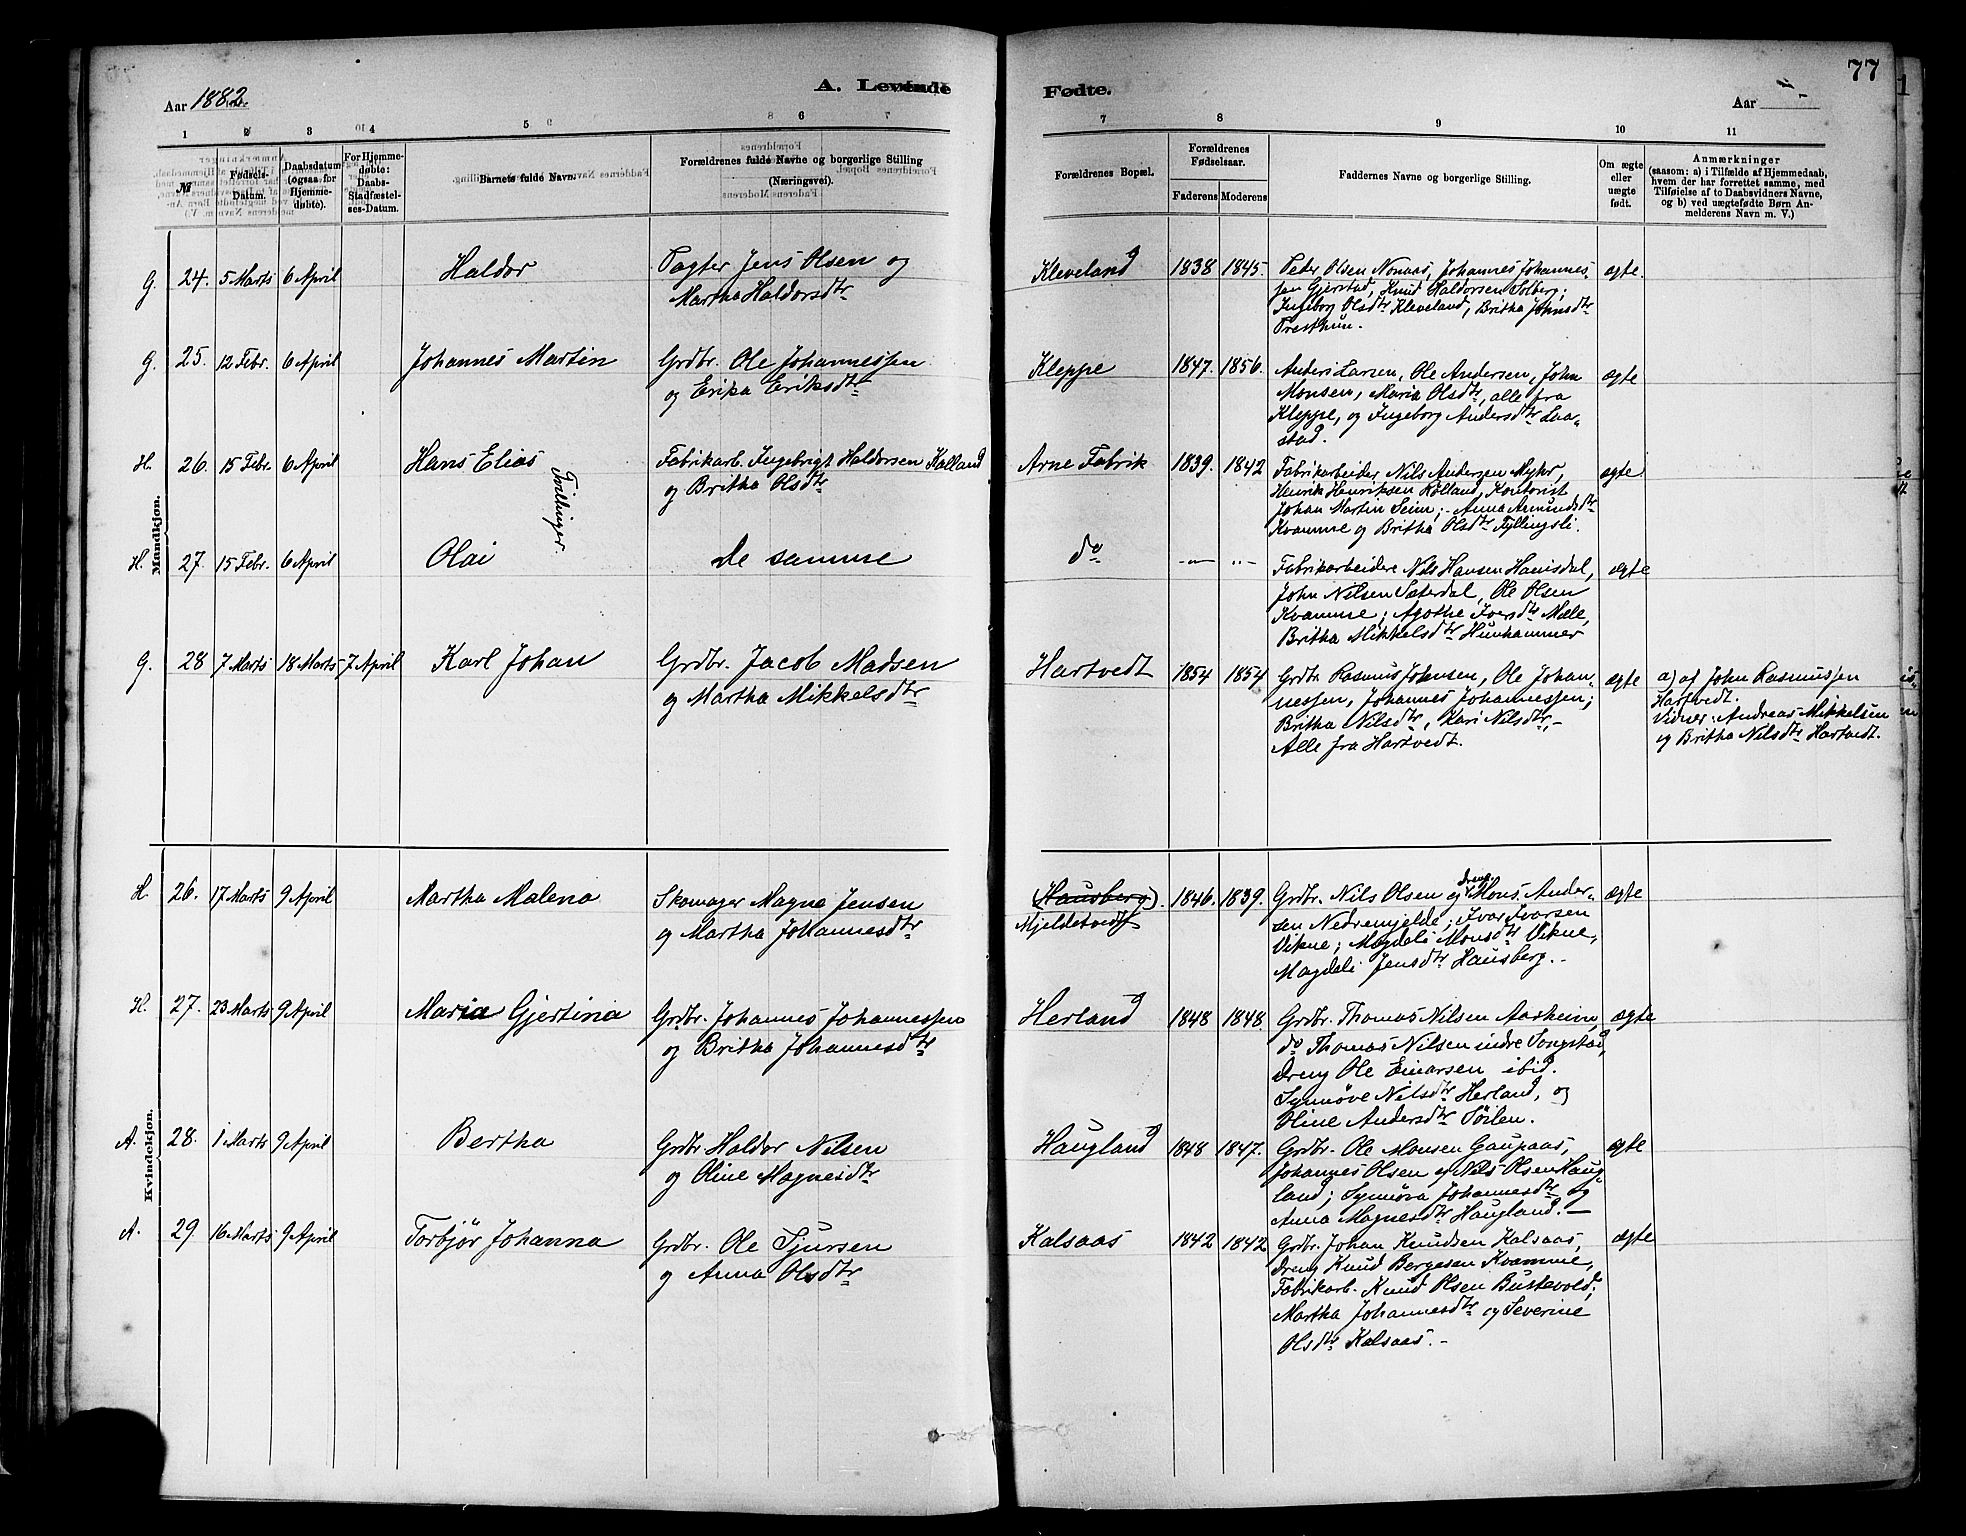 77
Aar 1882.
A. Levende Fødte.
Aar
1 2 3 4 5 6 7 8 9 10 11
№
Fødsels-Datum.
Daabsdatum (ogsaa for Hjemme-døbte).
For Hjemme-døbte: Daabs-Stadfæstel-ses-Datum.
Barnets fulde Navn.
Forældrenes fulde Navne og borgerlige Stilling (Næringsvei).
Forældrenes Bopæl.
Forældrenes Fødselsaar.
Faderens Moderens
Faddernes Navne og borgerlige Stilling.
Om ægte eller uægte født.
Anmærkninger
(saasom: a) i Tilfælde af Hjemmedaab,
hvem der har forrettet samme, med
Tilføielse af to Daabsvidners Navne,
og b) ved uægtefødte Børn An-
melderens Navn m. V.)
Mandkjøn.
G. 24. 5 Marts 6 April Haldor
Pagter Jens Olsen og
Martha Haldorsdtr
Kleveland 1838 1845.
Peder Olsen Nonaas, Johannes Johannes-
sen Gjerstad, Knud Haldorsen Solberg;
Ingeborg Olsdtr Kleveland, Britha Johnsdtr
Presthun.
ægte.
G. 25. 12 Febr. 6 April Johannes Martin
Grdbr. Ole Johannessen
og Erika Eriksdtr
Kleppe 1847. 1856.
Anders Larsen, Ole Andersen, John
Monsen, Maria Olsdtr, alle fra
Kleppe, og Ingeborg Andersdtr Laa-
stad.
ægte
H. 26. 15 Febr. 6 April Hans Elias
Tvillinger.
Fabrikarb. Ingebrigt Haldorsen Kolland
og Britha Olsdtr
Arne Fabrik 1839. 1842
Fabrikarbeider Nils Andersen Myhr,
Henrik Henriksen Rölland, Kontorist
Johan Martin Seim; Anna Amundsdtr
Kvamme og Britha Olsdtr Fyllingsli.
ægte
H. 27. 15 Febr. 6 April Olai
De samme
do -"- "-
Fabrikarbeidere Nils Hansen Hanisdal,
John Nilsen Sæterdal, Ole Olsen
Kvamme; Agothe Iversdtr Mæle,
Britha Mikkelsdtr Hunhammer
ægte
G. 28 7 Marts 18 Marts 7 April Karl Johan
Grdbr. Jacob Madsen
og Martha Mikkelsdtr
Hartvedt 1854 1854
Grdbr. Rasmus Johnsen, Ole Johan-
nessen, Johannes Johannessen;
Britha Nilsdtr, Kari Nilsdtr,-
Alle fra Hartvedt.
ægte
a) af John Rasmussen
Hartvedt.
Vidner: Andreas Mikkelsen
og Britha Nilsdtr Hartvedt.
Kvindekjøn.
H. 26. 17 Marts 9 April Martha Malena
Skomager Magne Jensen
og Martha Johannesdtr
(Hausberg).
Mjeldetvedt
1846. 1839.
Grdbr. Nils Olsen og dreng Mons Ander-
sen Nedremjelde; Ivar Ivarsen
Vikne; Magdeli Monsdtr Vikne,
Magdeli Jensdtr Hausberg. -
ægte
H. 27. 23 Marts 9 April Maria Gjertina
Grdbr. Johannes Johannessen
og Britha Johannesdtr
Herland 1848 1848.
Grdbr. Thomas Nilsen Aasheim,
do Thomas Nilsen indre Songstad,
Dreng Ole Einarsen ibid.
Synnöve Nilsdtr Herland, og
Oline Andersdtr Söilen.
ægte
A. 28. 1 Marts 9 April Bertha
Grdbr Haldor Nilsen
og Oline Magnesdtr
Haugland 1848 1847.
Grdbr. Ole Monsen Gaupaas,
Johannes Olsen og Nils Olsen Haug-
land; Synnöva Johannesdtr og
Anna Magnesdtr Haugland. -
ægte
A. 29. 16 Marts 9 April Torbjør Johanna
Grdbr. Ole Tjursen
og Anna Olsdtr
Kalsaas 1842 1842
Grdbr. Johan Knudsen Kalsaas,
Dreng Knud Bergesen Kvamme,
Fabrikarb. Knud Olsen Bustevold;
Martha Johannesdtr og Severine
Olsdtr Kalsaas. -
ægte